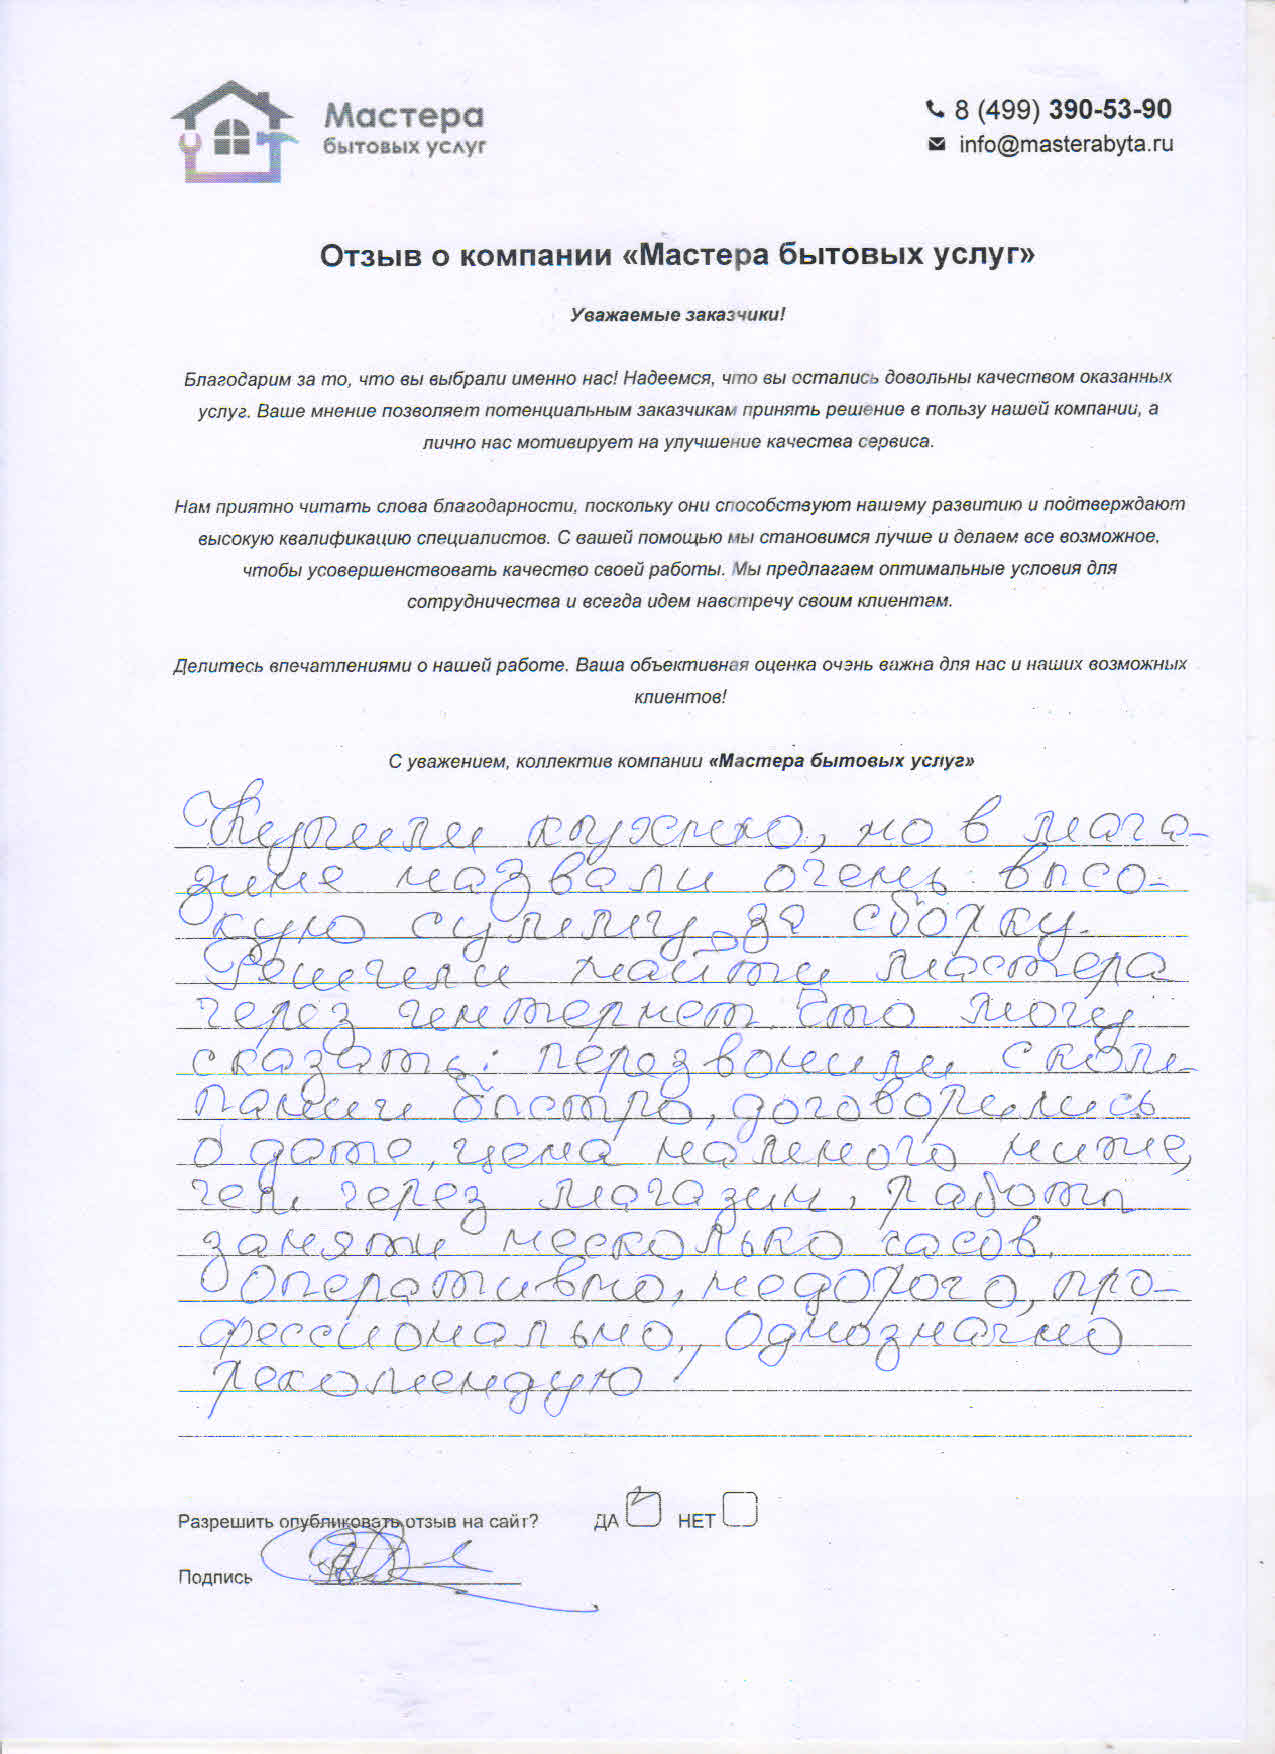 Мастера
бытовых услуг
8 (499) 390-53-90
info@masterabyta.ru
Отзыв о компании «Мастера бытовых услуг»
Уважаемые заказчики!
Благодарим за то, что вы выбрали именно нас! Надеемся, что вы остались довольны качеством оказанных
услуг. Ваше мнение позволяет потенциальным заказчикам принять решение в пользу нашей компании, а
лично нас мотивирует на улучшение качества сервиса.
Нам приятно читать слова благодарности, поскольку они способствуют нашему развитию и подтверждают
высокую квалификацию специалистов. С вашей помощью мы становимся лучше и делаем все возможное,
чтобы усовершенствовать качество своей работы. Мы предлагаем оптимальные условия для
сотрудничества и всегда идем навстречу своим клиентам.
Делитесь впечатлениями о нашей работе. Ваша объективная оценка очень важна для нас и наших возможных
клиентов!
С уважением, коллектив компании «Мастера бытовых услуг»
Купили кухню, но в мага-
зине назвали очень высо-
кую сумму за сборку.
Решили найти мастера
через интернет. Что могу
сказать: перезвонили с ком-
пании быстро, договорились
о дате, цена намного ниже,
чем через магазин, работы
заняти несколько часов.
Оперативно, недорого, про-
фессионально. Однозначно
рекомендую!
Разрешить опубликовать отзыв на сайт? ДА НЕТ
Подпись